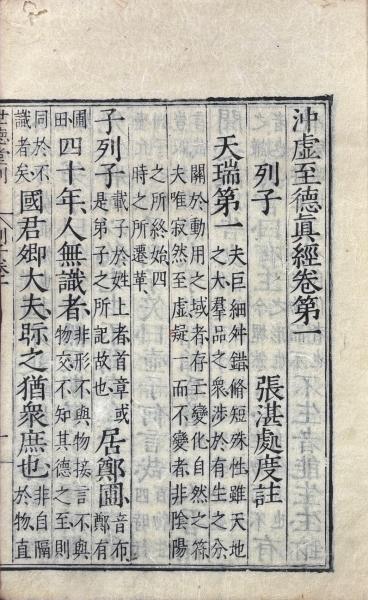 沖虛至德眞經卷第一
列子 張湛處度註
天瑞第一 夫巨細舛錯脩短殊性雖天地之大羣品之衆涉於有生之分
關於動用之域者存亡變化自然之符夫唯寂然至虛疑一而不變者非陰陽
之所終始四時之所遷革
子列子 載子於姓上者首章或是弟子之所記故也 居鄭圃 音布鄭有
圃田 四十年人無識者 非形不與物接言不與物交不知其德之至則
同於不識者矣 國君卿大夫眎之猶衆庶也 非自隔於物直
世德堂刊